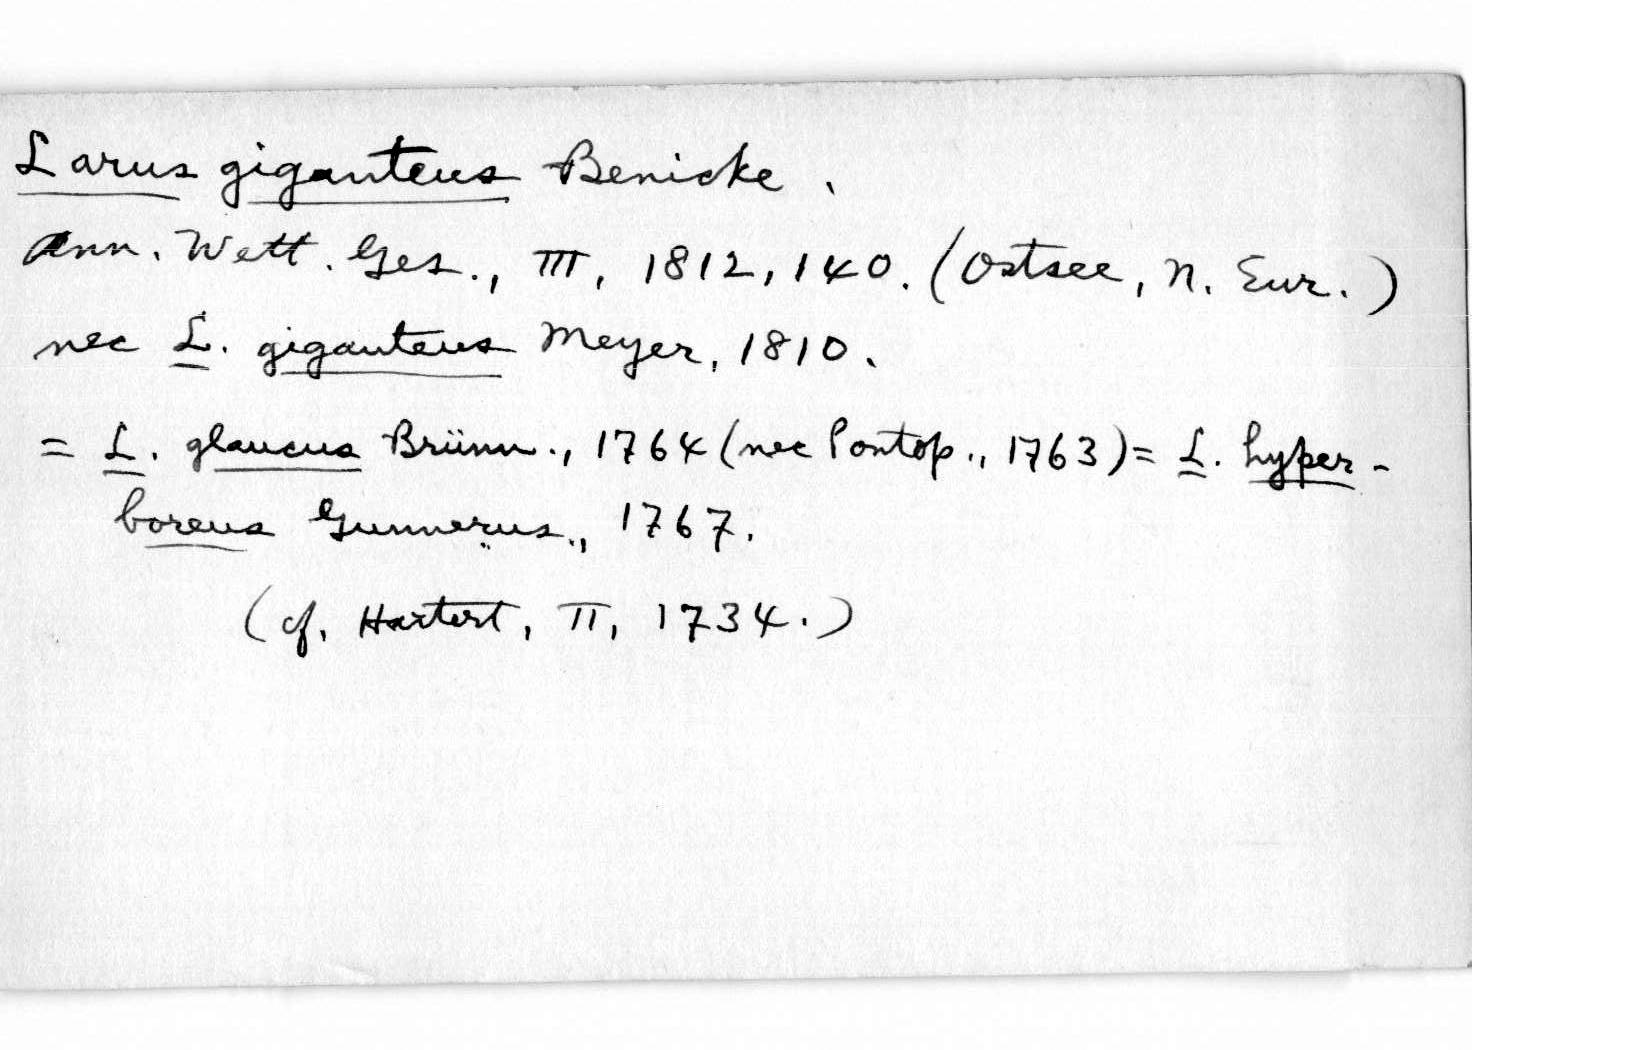 Larus giganteus Benicke.
Ann. Wett. Ges., III, 1812, 140. (Ostsee, N. Eur.)
nec L. giganteus Meyer, 1810.
= L. glaucus Brünn., 1764 (nec Pontop., 1763) = L. hyper-
boreus Gunnerus., 1767.
(cf. Hartert, II, 1734.)